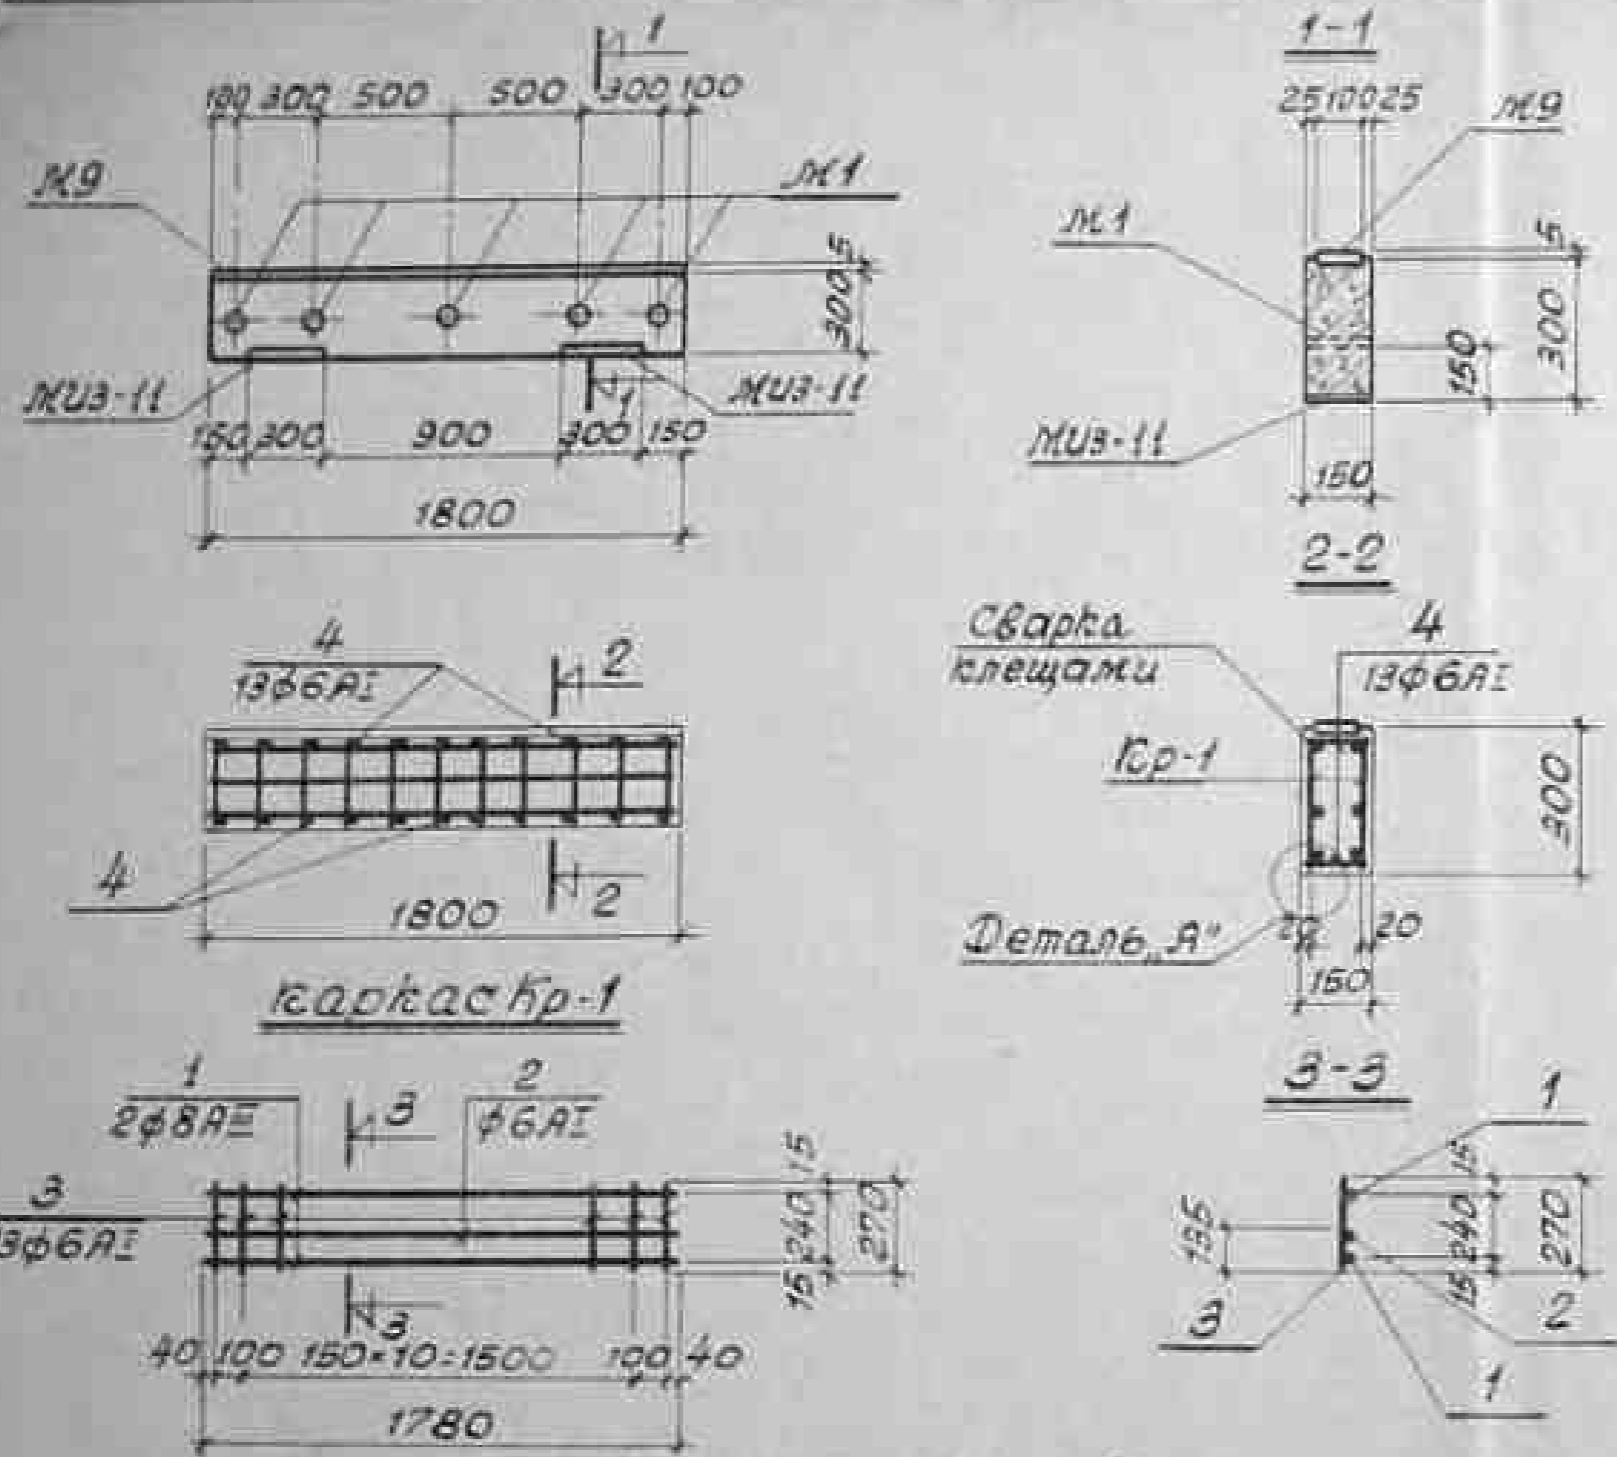 1
100 300 500 500 300 100
М9
М1
5
300
МИЗ-11
МИЗ-11
1
150 300 900 300 150
1800
1-1
25 100 25
М9
М1
5
300
150
МИЗ-11
150
4
13ф6АI
2
4
2
1800
2-2
Сварка
клещами
4
13ф6АI
Кр-1
300
Деталь „А"
20 20
150
каркас Кр-1
1
2ф8АIII
3
2
ф6АI
3
13ф6АI
15
240
15
270
3
40 100 150×10=1500 100 40
1780
3-3
1
135
15
240
15
270
3
2
1